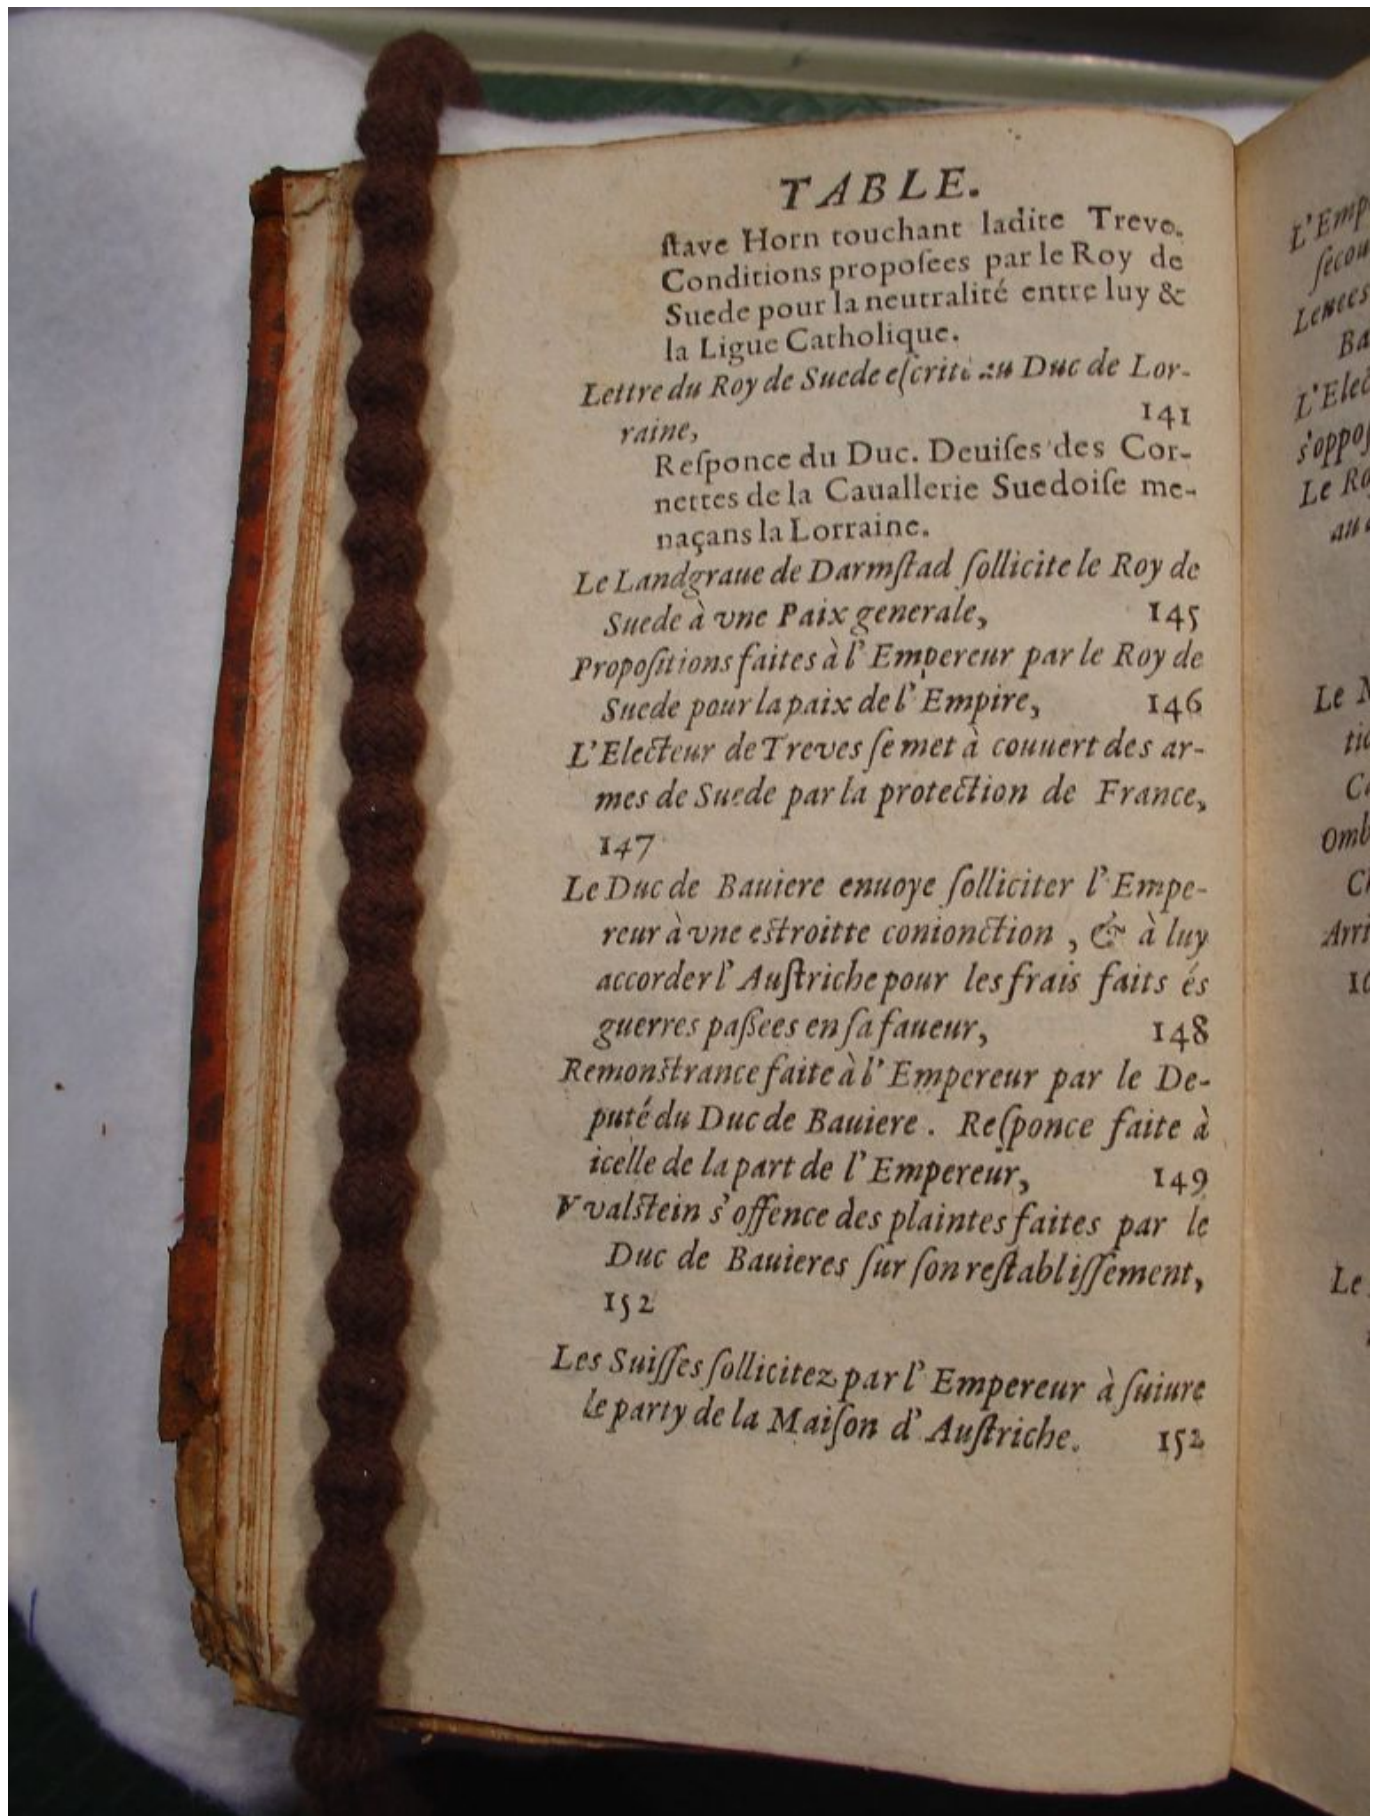 TABLE.
ſtave Horn touchant ladite Treve.
Conditions propoſees par le Roy de
Suede pour la neutralité entre luy &
la Ligue Catholique.
Lettre du Roy de Suede eſcrite au Duc de Lor-
raine, 141
Reſponce du Duc. Deuiſes des Cor-
nettes de la Cauallerie Suedoiſe me-
naçans la Lorraine.
Le Landgraue de Darmſtad ſollicite le Roy de
Suede à vne Paix generale, 145
Propoſitions faites à l'Empereur par le Roy de
Suede pour la paix de l'Empire, 146
L'Electeur de Treves ſe met à couuert des ar-
mes de Suede par la protection de France,
147
Le Duc de Bauiere enuoye ſolliciter l'Empe-
reur à vne eſtroitte conionction, & à luy
accorder l'Auſtriche pour les frais faits és
guerres paßees en ſa faueur, 148
Remonſtrance faite à l'Empereur par le De-
puté du Duc de Bauiere. Reſponce faite à
icelle de la part de l'Empereur, 149
Vvalſtein s'offence des plaintes faites par le
Duc de Bauieres ſur ſon reſtabliſſement,
152
Les Suiſſes ſollicitez par l'Empereur à ſuiure
le party de la Maiſon d'Auſtriche. 152
L'Emp
ſecou
Lenees
Ba
L'Elec
s'oppoſ
Le Ro
au
Le
Ca
Omb
Ch
Arri
10
Le